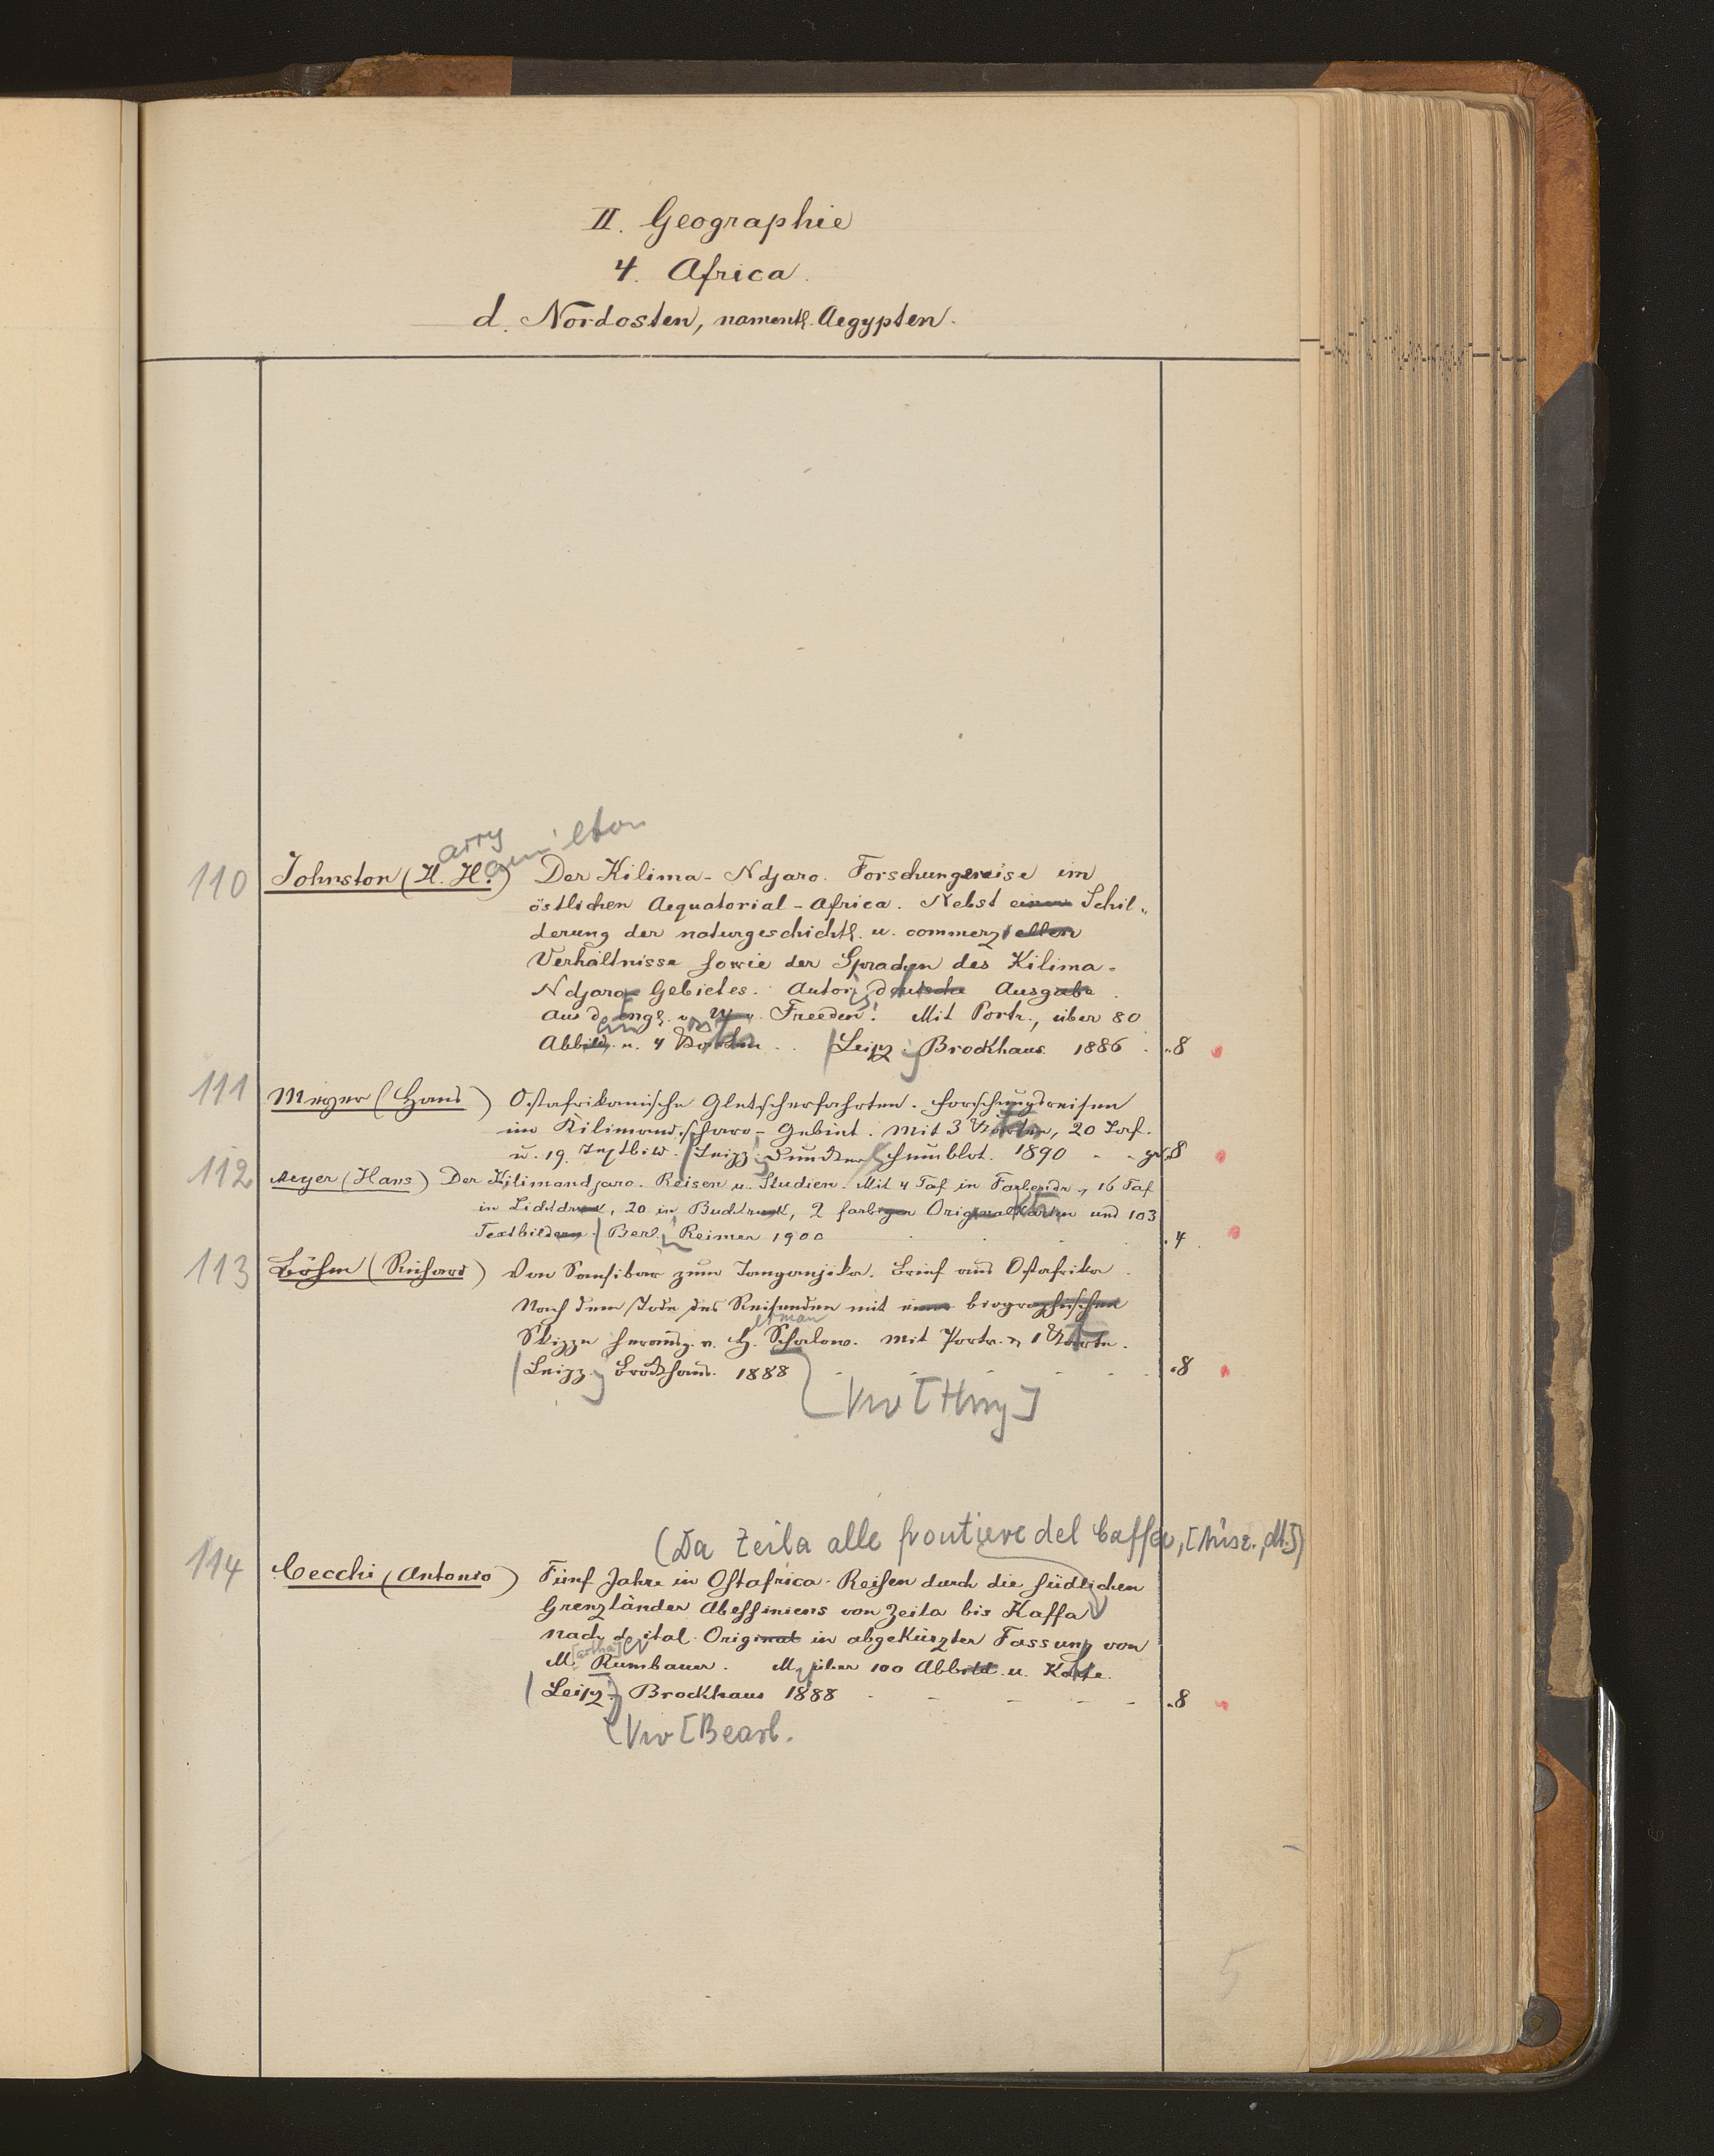 II. Geographie
4. Africa.
d. Nordosten, namentl. Aegypten.
arry amilton
110 Johnston (H. H.) Der Kilima-Ndjaro. Forschungsreise im
östlichen Aequatorial-Africa. Nebst einer Schil-
derung der naturgeschichtl. u. commerziellen
Verhältnisse sowie der Sprachen des Kilima-
Ndjaro-Gebietes. Autoris. deutsche Ausgabe.
Aus d. Engl. v. W. v. Freeden. Mit Portr., über 80
Abbild. u. 4 Karten. Leipz. Brockhaus. 1886. 8
111 Meyer (Hans) Ostafrikanische Gletscherfahrten. Forschungsreisen
im Kilimandscharo-Gebiet. Mit 3 Karten, 20 Taf.
u. 19 Textbild. Leipz. Duncker Humblot. 1890 - - gr. 8
112 Meyer (Hans) Der Kilimandjaro. Reisen u. Studien. Mit 4 Taf in Farbendr., 16 Taf
in Lichtdruck, 20 in Buchdruck, 2 farbigen Originalkarten und 103
Textbildern. Berl. Reimer 1900 4
113 Böhm (Richard) Von Sansibar zum Tanganjika. Briefe aus Ostafrika.
Nach dem Tode des Reisenden mit einer biographischen
erman
Skizze herausg. v. H. Schalow. Mit Portr. u. 1 Karte.
Leipz. Brockhaus. 1888 8
Vw [Hrsg]
(Da Zeila alle frontiere del Caffa, [Ausz., dt.])
114 Cecchi (Antonio) Fünf Jahre in Ostafrica. Reisen durch die südlichen
Grenzländer Abessiniens von Zeila bis Kaffa
Nach d. ital. Original in abgekürzter Fassung von
[artha]
M. Rumbauer. M. über 100 Abbild. u. Karte.
Leipz. Brockhaus 1888 - - - - 8
Vw [Bearb.
5